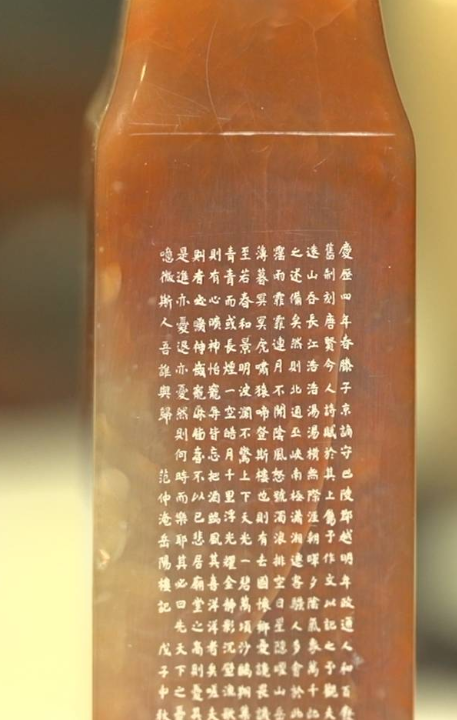 慶曆四年春滕子京謫守巴陵郡越明年政通人和百廢
舊制刻唐賢今人詩賦於其上屬予作文以記之予觀夫
遠山吞長江浩浩湯湯橫無際涯朝暉夕陰氣象萬千
之述備矣然則北通巫峽南極瀟湘遷客騷人多會於此
霪雨霏霏連月不開陰風怒號濁浪排空日星隱曜山岳
薄暮冥冥虎嘯猿啼登斯樓也則有去國懷鄉憂讒畏譏
至若春和景明波瀾不驚上下天光一碧萬頃沙鷗翔集
青青而或長煙一空皓月千里浮光耀金靜影沉璧漁歌
則有心曠神怡寵辱皆忘把酒臨風其喜洋洋者矣嗟夫
喜不以己悲居廟堂之高則憂其
是進亦憂退亦憂然則何時而樂耶其必曰先天下之憂
噫微斯人吾誰與歸 范仲淹岳陽樓記 戊子中秋